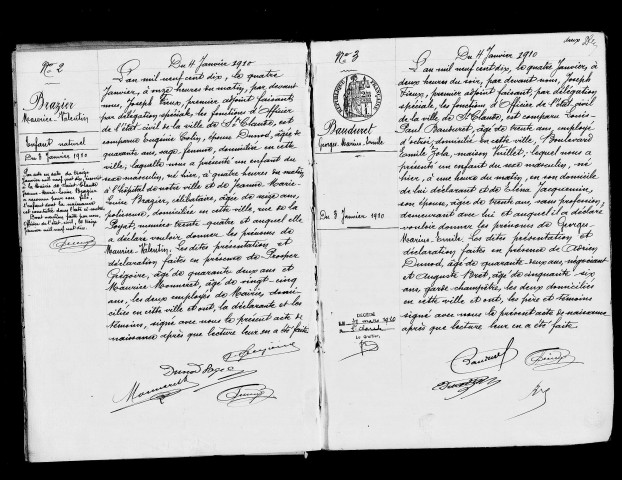 Nº 2
Du 4 Janvier 1910
Brazier
Maurice-Valentin
Enfant naturel
Du 3 Janvier 1910
Par acte en date du treize
janvier mil neuf cent dix, dressé
à la Mairie de Saint-Claude
Jeanne-Marie-Louise Brazier
a reconnu pour son fils
l'enfant dont la naissance est
constatée dans l'acte ci-contre.
Dont mention faite par nous,
officier de l'état civil, le treize
janvier mil neuf cent dix.
L'an mil neuf cent dix, le quatre
Janvier, à onze heures du matin, par devant
nous, Joseph Vieux, premier adjoint faisant,
par délégation spéciale, les fonctions d'Officier
de l'état-civil de la ville de St-Claude, est
comparue Eugénie Colin, épouse Dunod, âgée de
quarante ans, sage-femme, domiciliée en cette
ville, laquelle nous a présenté un enfant du
sexe masculin, né hier, à quatre heures du matin,
à l'hôpital de notre ville et de Jeanne-Marie-
Louise Brazier, célibataire, âgée de seize ans,
polisseuse, domiciliée en cette ville, rue de la
Poyat, numéro trente quatre et auquel elle
a déclaré vouloir donner les prénoms de
Maurice-Valentin. Lesdites présentation et
déclaration faites en présence de Prosper
Grégoire, âgé de quarante deux ans et
Maurice Monneret, âgé de vingt-cinq
ans, les deux employés de Mairie, domi-
ciliés en cette ville et ont, la déclarante et les
témoins, signé avec nous le présent acte de
naissance après que lecture leur en a été faite.
Monneret
Nº 3
Du 4 Janvier 1910
RÉPUBLIQUE FRANÇAISE
Banduret
Georges-Marius-Emile
Du 3 Janvier 1910
DÉCÉDÉ
Le Greffier,
L'an mil neuf cent dix, le quatre Janvier, à
deux heures du soir, par devant nous, Joseph
Vieux, premier adjoint, faisant, par délégation
spéciale, les fonctions d'Officier de l'état civil
de la ville de St-Claude, est comparu Louis-
Paul Banduret, âgé de trente ans, employé
d'octroi, domicilié en cette ville, Boulevard
Emile Zola, maison Vuillet, lequel nous a
présenté un enfant du sexe masculin, né
hier, à une heure du matin, en son domicile
de lui déclarant et de Eléna Jacquemin,
son épouse, âgée de trente ans, sans profession,
demeurant avec lui et auquel il a déclaré
vouloir donner les prénoms de Georges-
Marius-Emile. Lesdites présentation et
déclaration faites en présence de Adrien
Dunod, âgé de quarante-deux ans, négociant
et Auguste Bret, âgé de cinquante-six
ans, garde champêtre, les deux domiciliés
en cette ville et ont, les père et témoins
signé avec nous le présent acte de naissance
après que lecture leur en a été faite.
Banduret